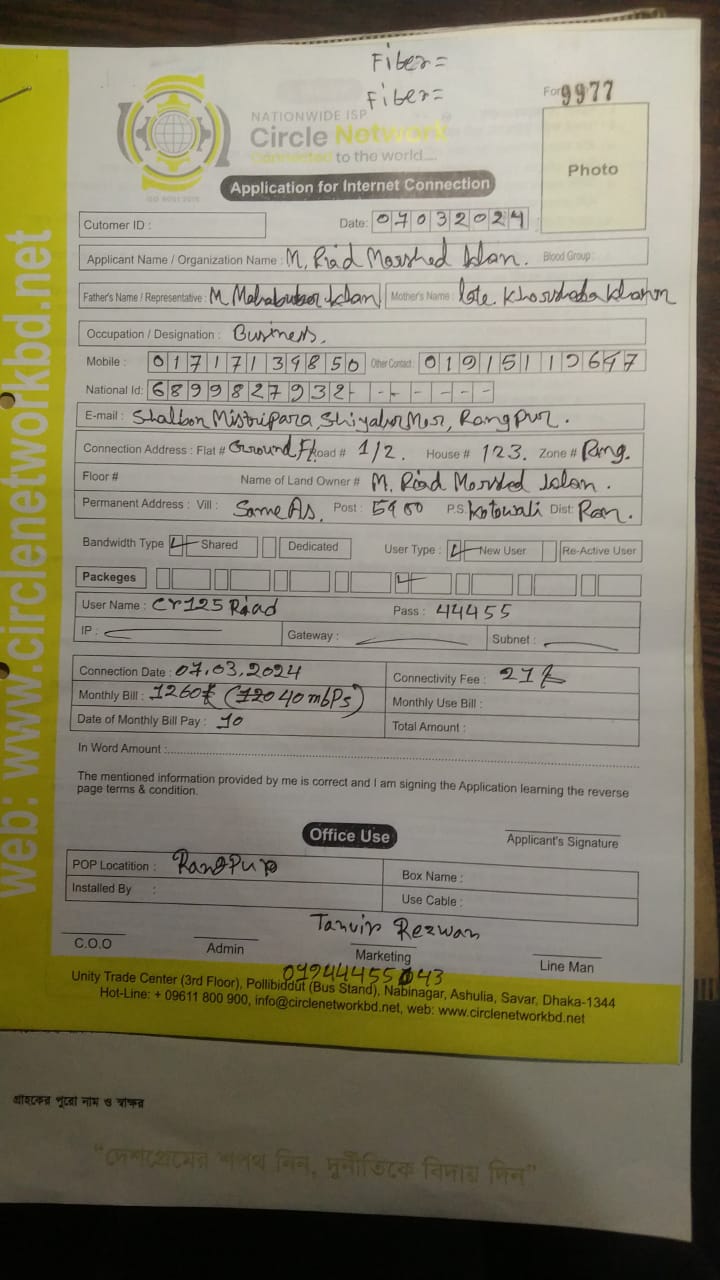 Fiber=
Fiber=
For 9977
NATIONWIDE ISP
Circle Network
Connected to the world....
ISO 9001:2015
Photo
Application for Internet Connection
Cutomer ID :
Date: 07032024
Applicant Name / Organization Name : M. Riad Morshed Blood Group :
Father's Name / Representative : M Mother's Name : late.
Occupation / Designation : Business.
Mobile : 01717139850 Other Contact :
National Id: 6899827932
E-mail : Shalbon Mistripara, Rangpur.
Connection Address : Flat # Ground Road # 1/2. House # 123. Zone # Rang.
Floor # Name of Land Owner # M. Riad Morshed
Permanent Address : Vill : Same As. Post : 5400 P.S. Kotowali Dist: Ran.
Bandwidth Type Shared Dedicated User Type : New User Re-Active User
Packeges
User Name : cr125Riad Pass : 44455
IP : Gateway : Subnet :
Connection Date : 07.03.2024 Connectivity Fee :
Monthly Bill : 1260 40mbPs) Monthly Use Bill :
Date of Monthly Bill Pay : 10 Total Amount :
In Word Amount :
The mentioned information provided by me is correct and I am signing the Application learning the reverse
page terms & condition.
Applicant's Signature
Office Use
POP Locatition : Rangpur Box Name :
Installed By : Use Cable :
Tanvir Rezwan
C.O.O Admin Marketing Line Man
Unity Trade Center (3rd Floor), Pollibiddut (Bus Stand), Nabinagar, Ashulia, Savar, Dhaka-1344
Hot-Line: + 09611 800 900, info@circlenetworkbd.net, web: www.circlenetworkbd.net
web: www.circlenetworkbd.net
গ্রাহকের পুরো নাম ও স্বাক্ষর
“দেশপ্রেমের শপথ নিন, দুর্নীতিকে বিদায় দিন”